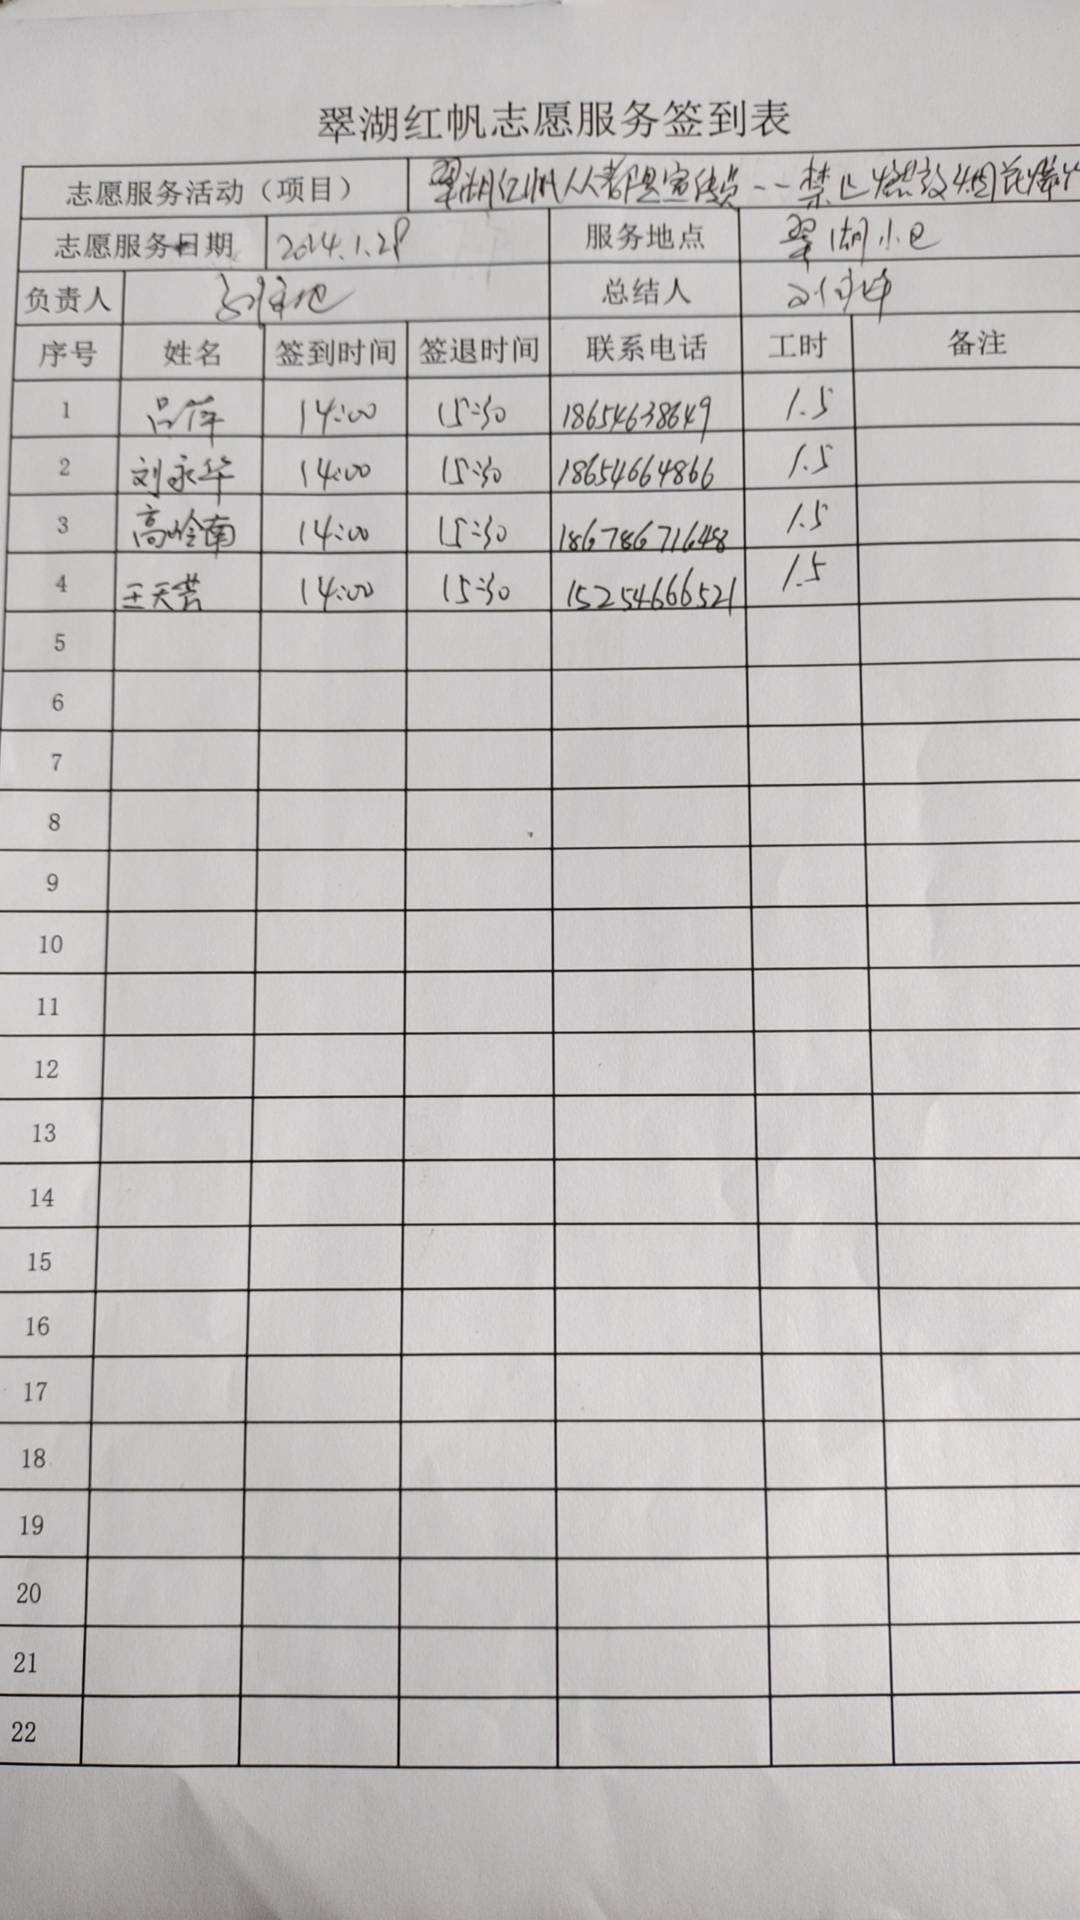 翠湖红帆志愿服务签到表
志愿服务活动（项目） 翠湖红帆人人都是宣传员--禁止燃放烟花爆竹
志愿服务日期 2024.1.28 服务地点 翠湖小区
负责人 总结人
序号 姓名 签到时间 签退时间 联系电话 工时 备注
1 吕萍 14:00 15:30 18654638649 1.5
2 刘永华 14:00 15:30 18654664866 1.5
3 高岭南 14:00 15:30 186786716488 1.5
4 王天芸 14:00 15:30 15254666521 1.5
5
6
7
8
9
10
11
12
13
14
15
16
17
18
19
20
21
22